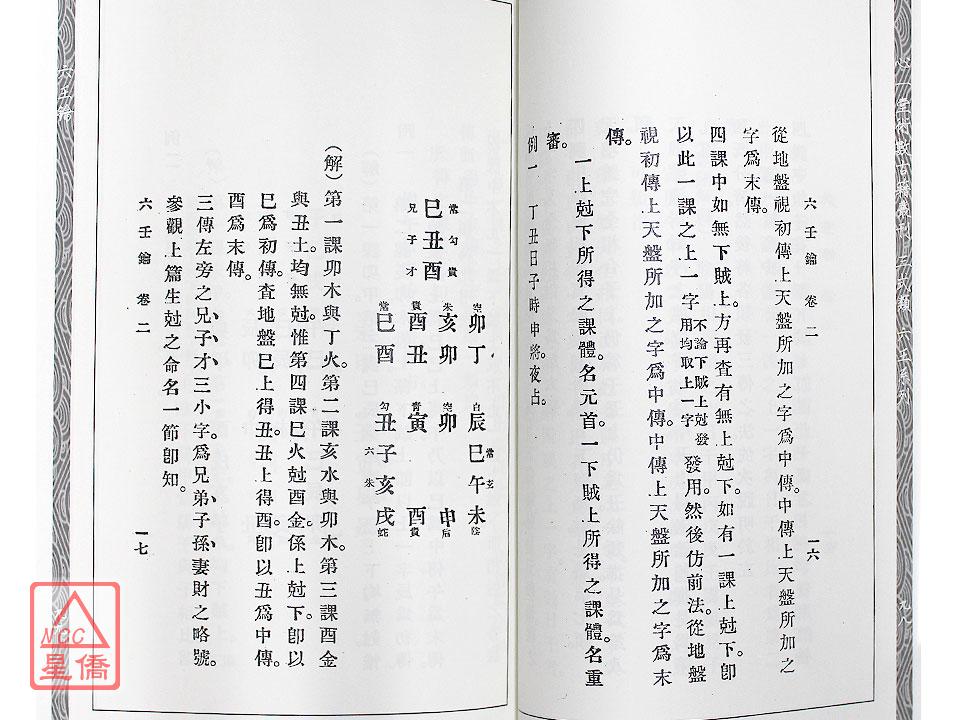 六壬鑰 卷二 一六
從地盤視初傳上天盤所加之字爲中傳。中傳上天盤所加之
字爲末傳。
四課中如無下賊上。方再查有無上尅下。如有一課上尅下。卽
以此一課之上一字 不論下賊上尅發用均取上一字 發用。然後仿前法。從地盤
視初傳上天盤所加之字爲中傳。中傳上天盤所加之字爲末
傳。
一上尅下所得之課體。名元首。一下賊上所得之課體。名重
審。
例一 丁丑日子時申將。夜占。
常 勾 貴
巳 丑 酉
兄 子 才
空 朱 貴 常
卯 亥 酉 巳
丁 卯 丑 酉
白 常 玄 陰
辰 巳 午 未
空 卯 申 后
青 寅 酉 貴
勾 丑 子 亥 戌 蛇
六 朱
(解)第一課卯木與丁火。第二課亥水與卯木。第三課酉金
與丑土。均無尅。惟第四課巳火尅酉金。係上尅下。卽以
巳爲初傳。查地盤巳上得丑。丑上得酉。卽以丑爲中傳。
酉爲末傳。
三傳左旁之兄、子、才、三小字。爲兄弟、子孫、妻財之略號。
參觀上篇生尅之命名一節卽知。
六壬鑰 卷二 一七
六壬鑰
NCC
星僑